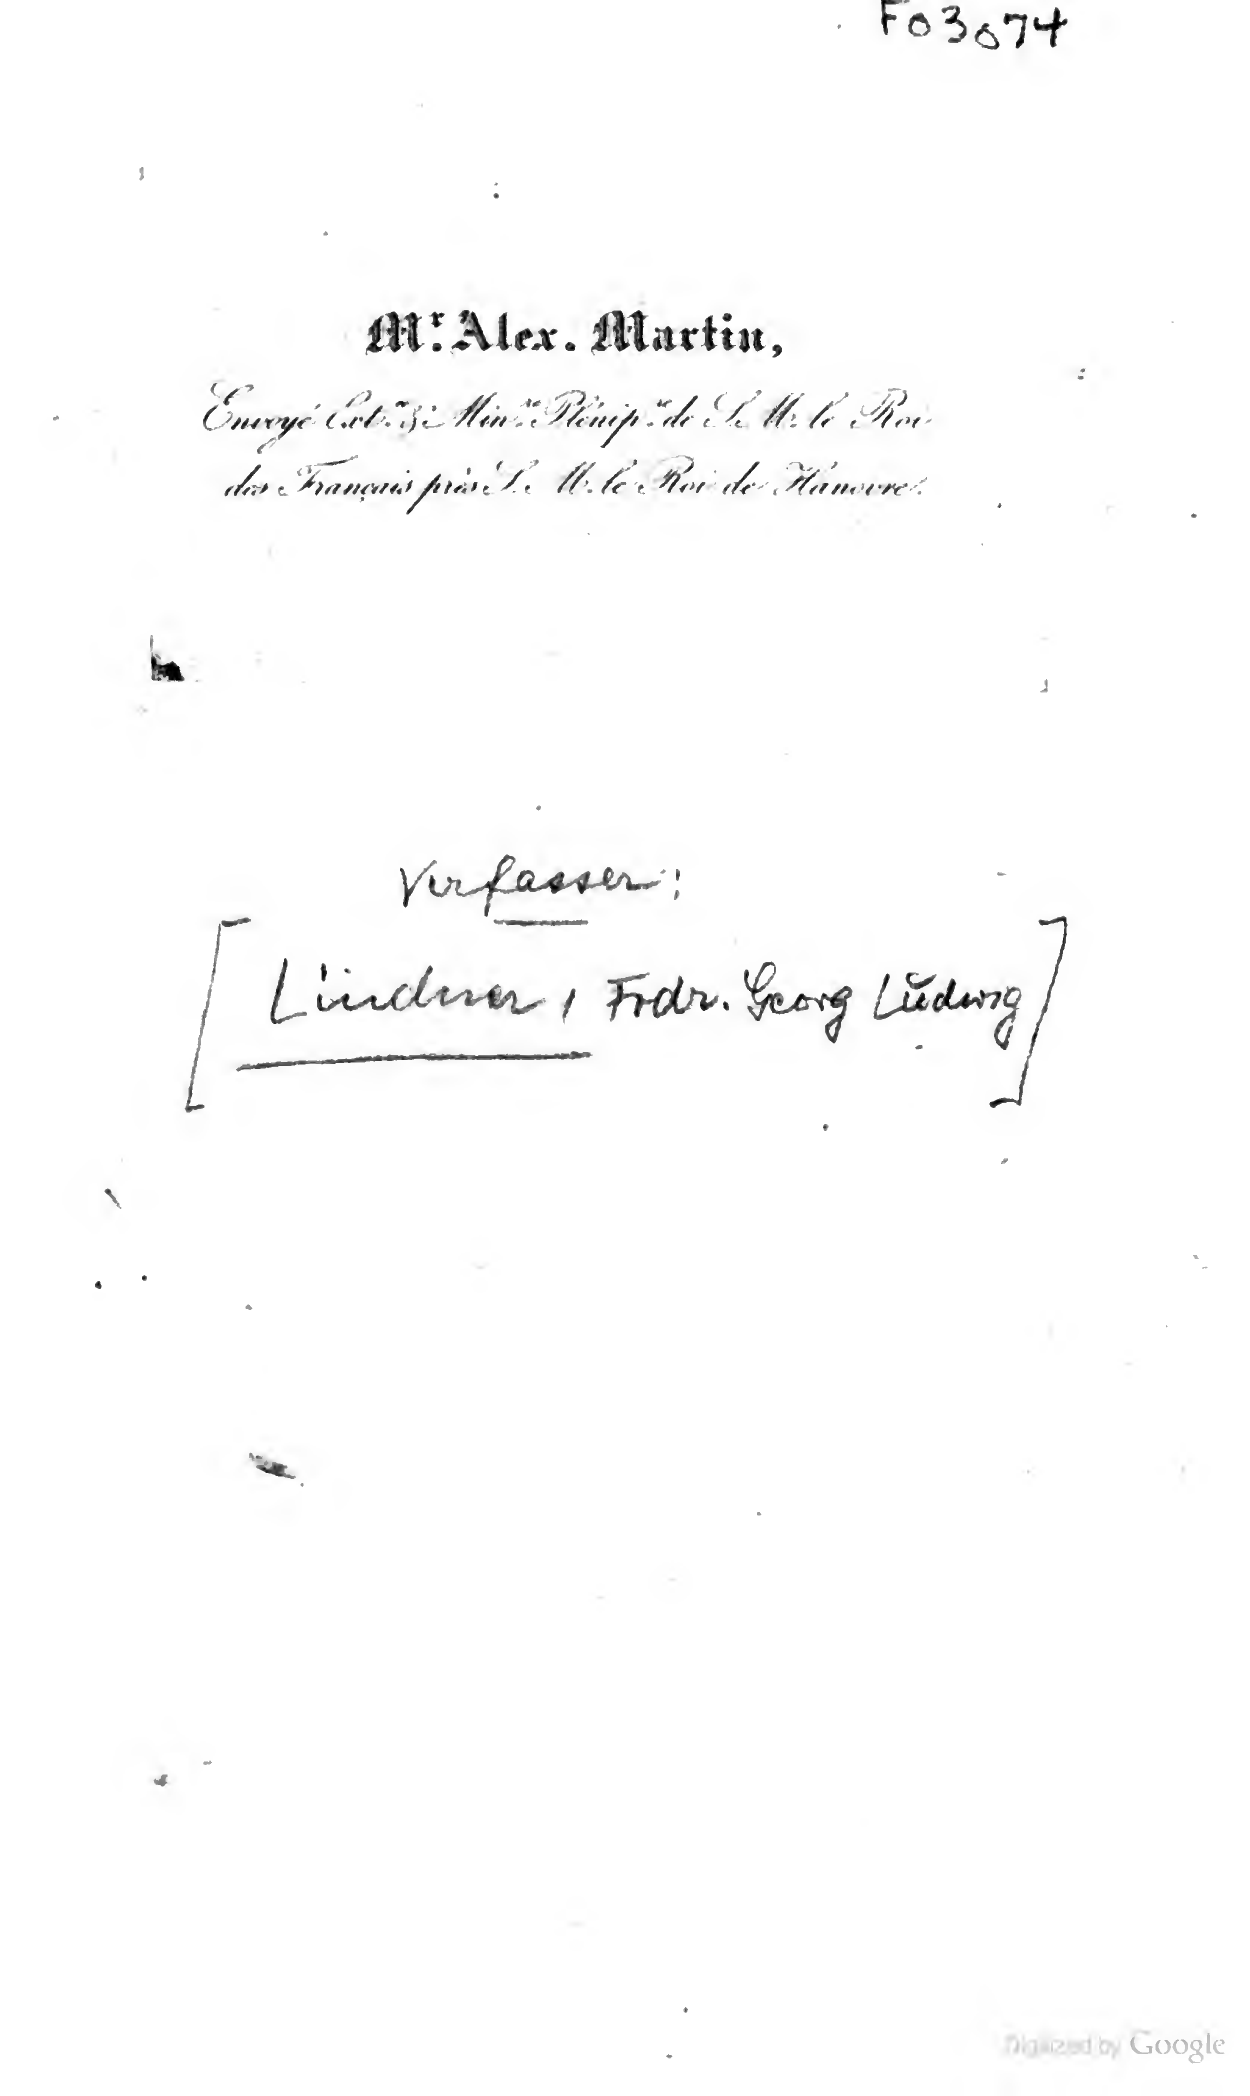 F03074
Mr. Alex. Martin,
Envoyé Ext.re & Min.re Plénip.re de S. M. le Roi
des Français près S. M. le Roi de Hanovre.
Verfasser:
[Lindner, Frdr. Georg Ludwig]
Digitized by Google